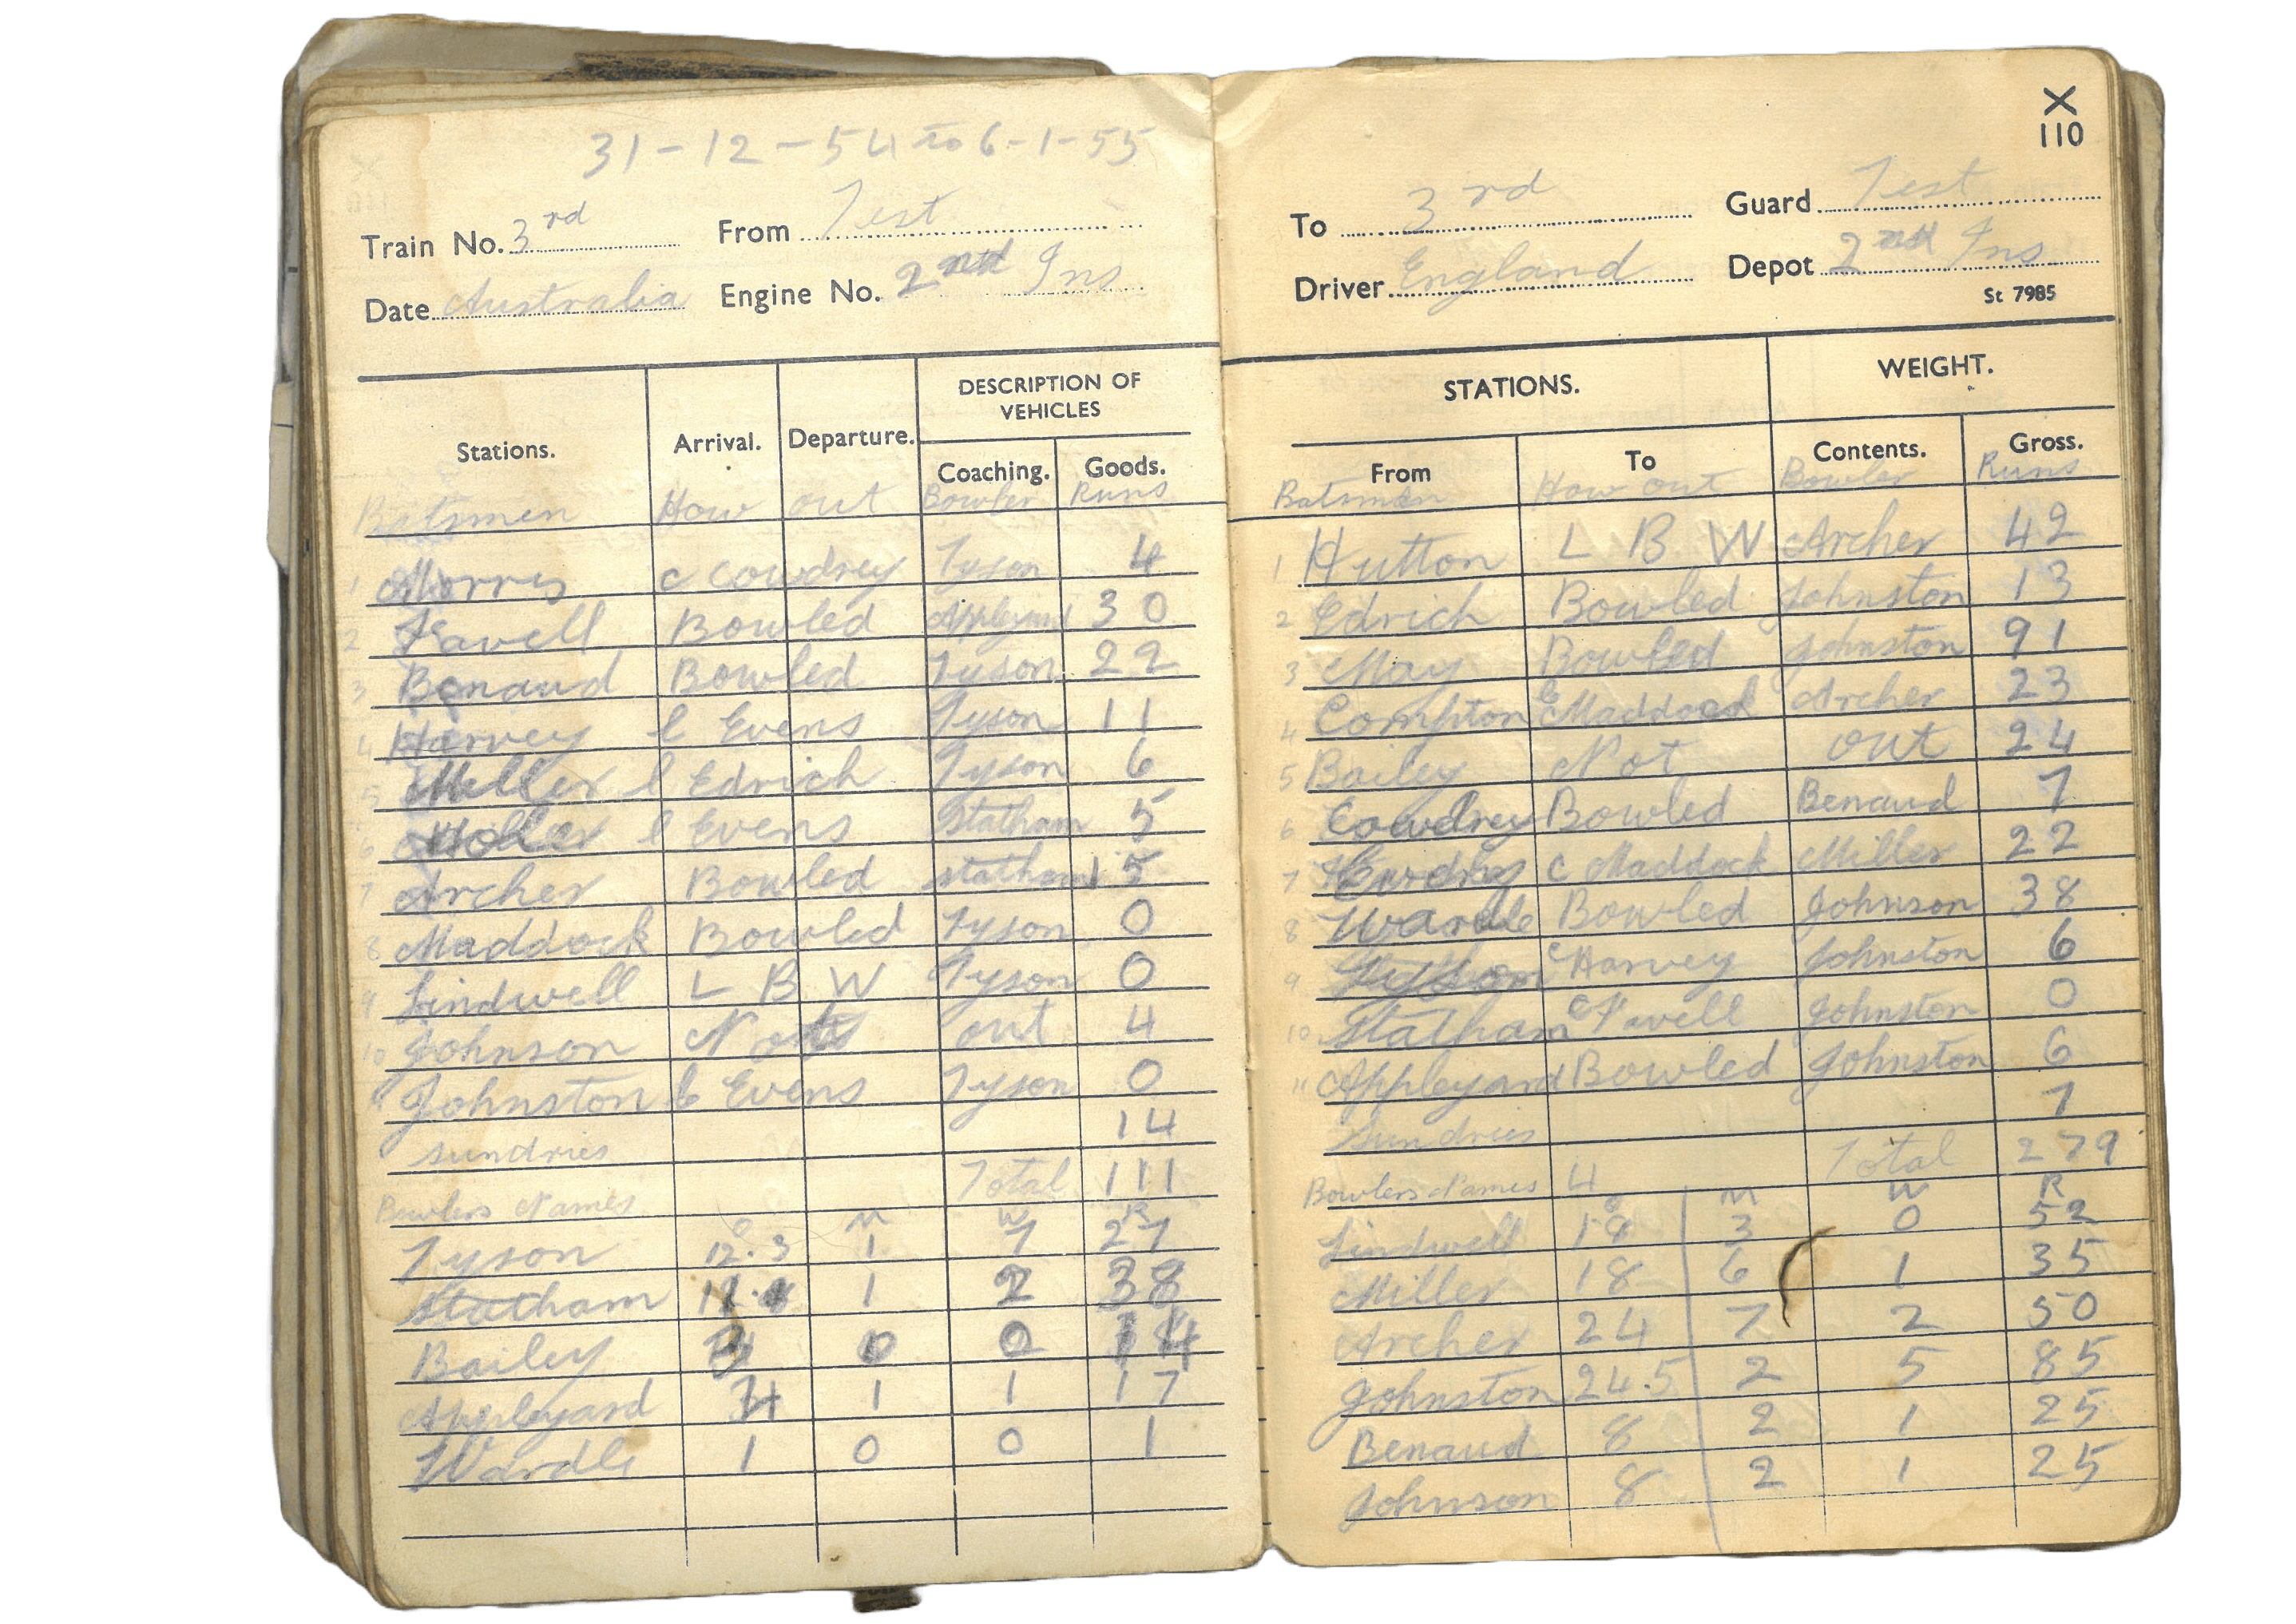 31-12-54 to 6-1-55
Train No. 3rd From Test
Date Australia Engine No. 2nd Ins
Stations. Arrival. Departure. DESCRIPTION OF VEHICLES
Coaching. Goods.
Batsmen How out Bowler Runs
1 Morris c Cowdrey Tyson 4
2 Favell Bowled Appleyard 30
3 Benaud Bowled Tyson 22
4 Harvey c Evens Tyson 11
5 Miller c Edrich Tyson 6
6 Hole c Evens Statham 5
7 Archer Bowled Statham 15
8 Maddock Bowled Tyson 0
9 Lindwell L B W Tyson 0
10 Johnson Not out 4
11 Johnston c Evens Tyson 0
Sundries 14
Total 111
Bowlers Names O M W R
Tyson 12.3 1 7 27
Statham 1 2 38
Bailey 3 0 0 14
Appleyard 4 1 1 17
Wardle 1 0 0 1
X
110
To 3rd Guard Test
Driver England Depot 2nd Ins
St 7985
STATIONS. WEIGHT.
From To Contents. Gross.
Batsmen How out Bowler Runs
1 Hutton L B W Archer 42
2 Edrich Bowled Johnston 13
3 May Bowled Johnston 91
4 Compton c Maddock Archer 23
5 Bailey Not out 24
6 Cowdrey Bowled Benaud 7
7 c Maddock Miller 22
8 Wardle Bowled Johnson 38
9 Tyson c Harvey Johnston 6
10 Statham c Favell Johnston 0
11 Appleyard Bowled Johnston 6
Sundries 7
4 Total 279
Bowlers Names O M W R
Lindwell 18 3 0 52
Miller 18 6 1 35
Archer 24 7 2 50
Johnston 24.5 2 5 85
Benaud 8 2 1 25
Johnson 8 2 1 25